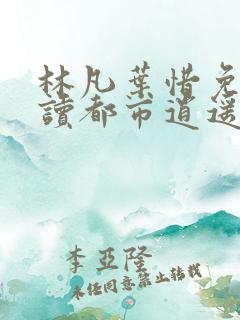 林凡葉惜免
讀都市逍遥
李亞隆
未经同意禁止转载